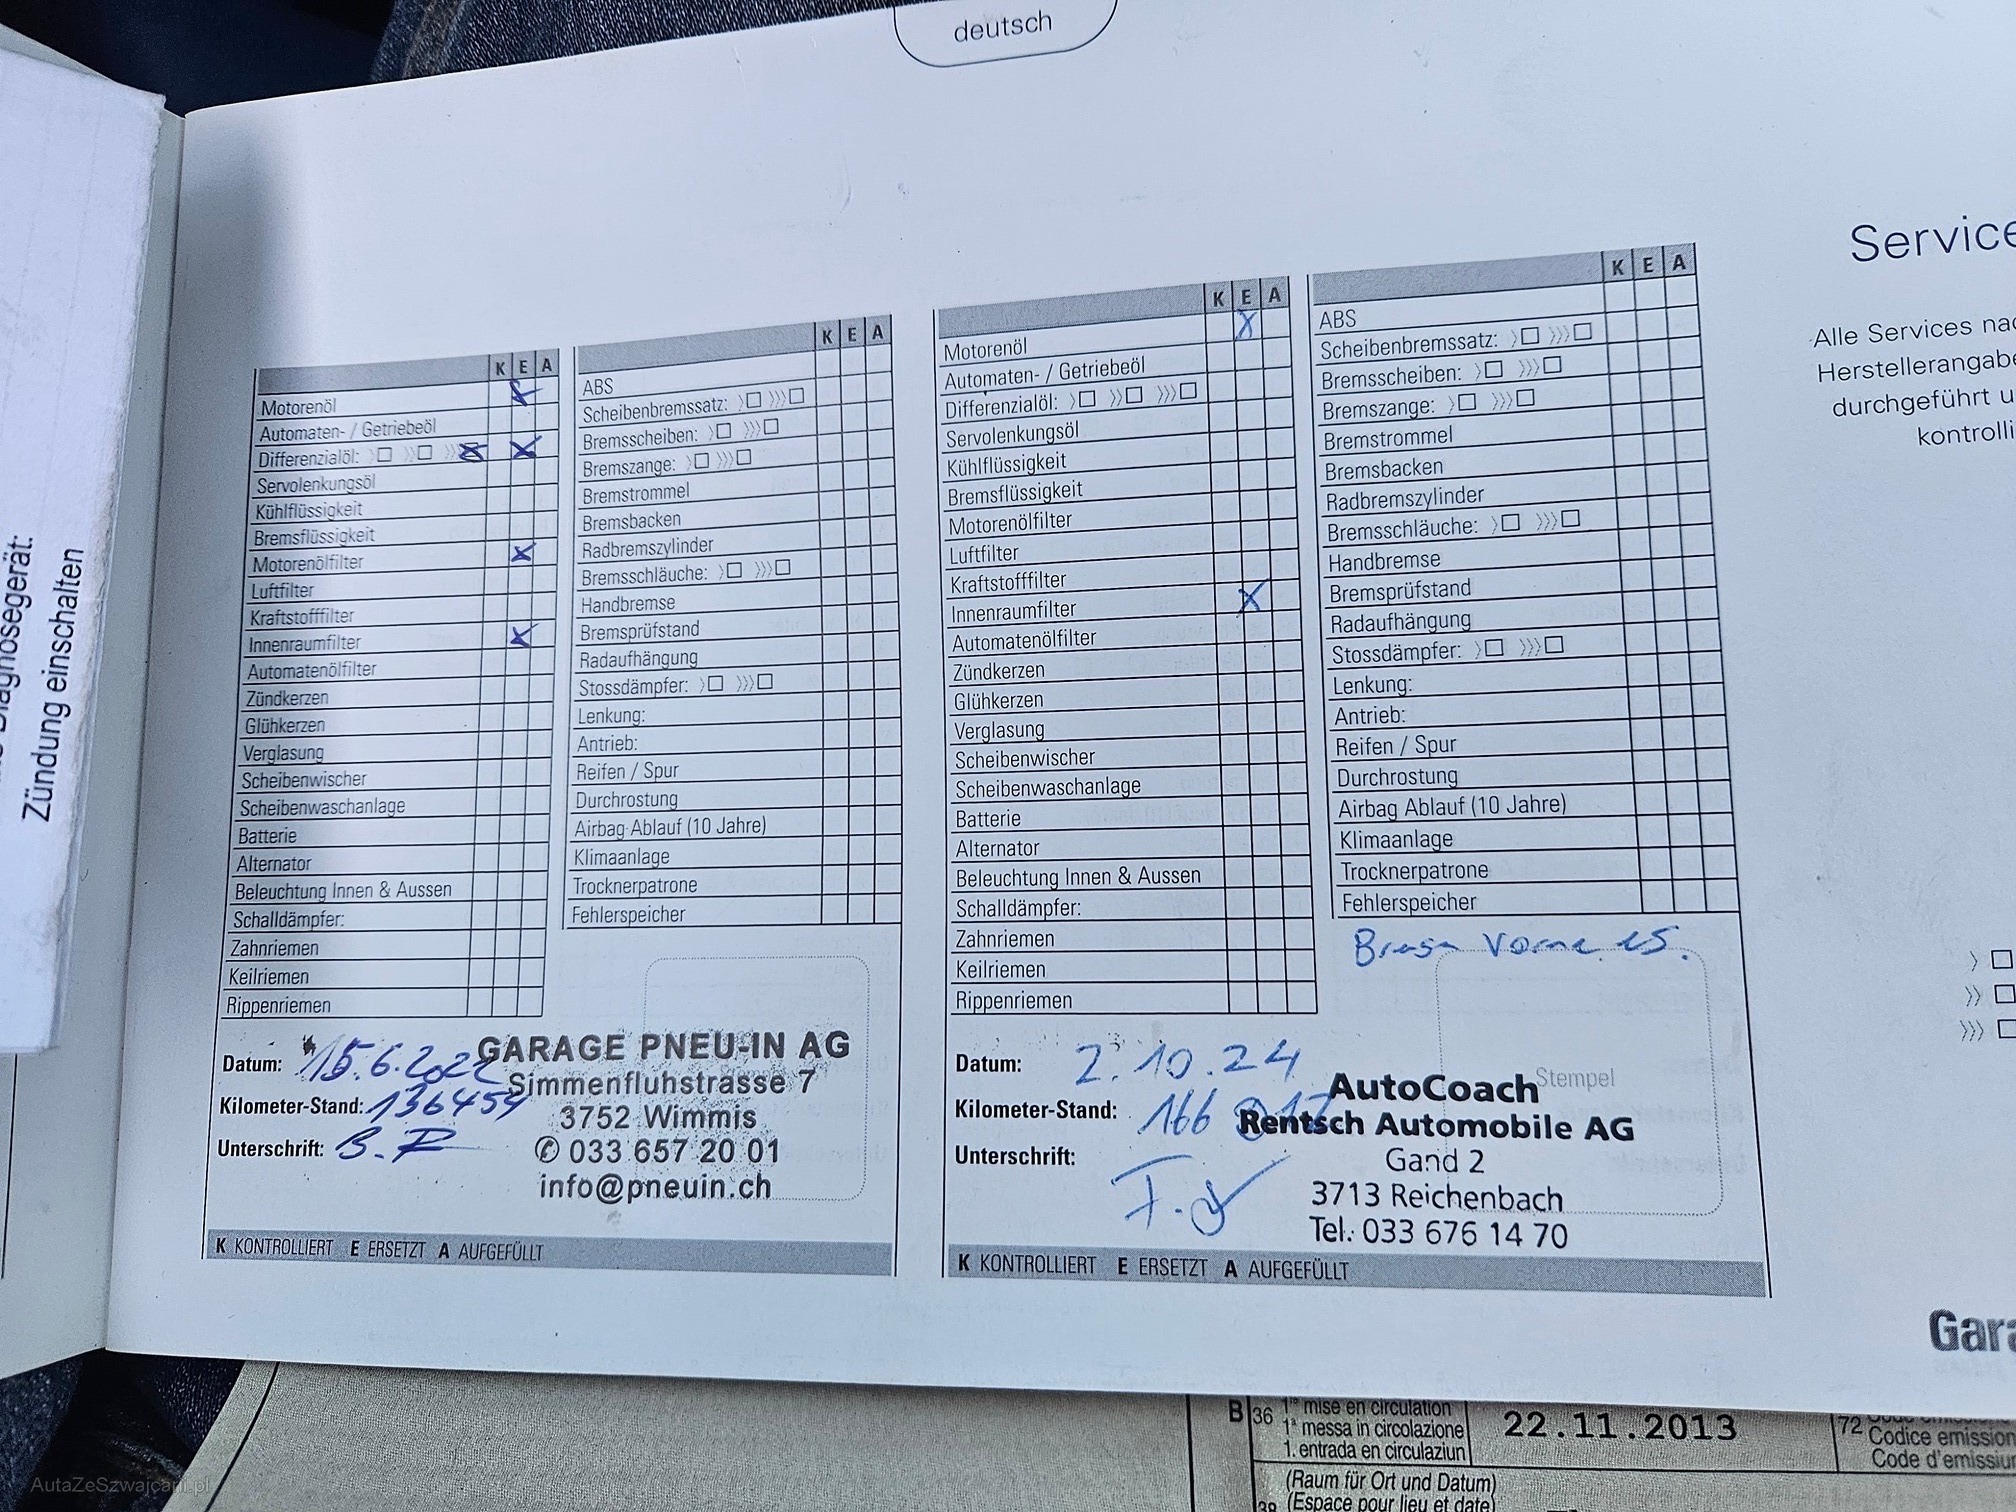 deutsch
Diagnosegerät:
Zündung einschalten
K E A
Motorenöl
Automaten- / Getriebeöl
Differenzialöl: 〉 〉〉 〉〉〉
Servolenkungsöl
Kühlflüssigkeit
Bremsflüssigkeit
Motorenölfilter
Luftfilter
Kraftstofffilter
Innenraumfilter
Automatenölfilter
Zündkerzen
Glühkerzen
Verglasung
Scheibenwischer
Scheibenwaschanlage
Batterie
Alternator
Beleuchtung Innen & Aussen
Schalldämpfer:
Zahnriemen
Keilriemen
Rippenriemen
K E A
ABS
Scheibenbremssatz: 〉 〉〉〉
Bremsscheiben: 〉 〉〉〉
Bremszange: 〉 〉〉〉
Bremstrommel
Bremsbacken
Radbremszylinder
Bremsschläuche: 〉 〉〉〉
Handbremse
Bremsprüfstand
Radaufhängung
Stossdämpfer: 〉 〉〉〉
Lenkung:
Antrieb:
Reifen / Spur
Durchrostung
Airbag Ablauf (10 Jahre)
Klimaanlage
Trocknerpatrone
Fehlerspeicher
Datum: 15.6.2022
Kilometer-Stand: 136454
Unterschrift: B.R
GARAGE PNEU-IN AG
Simmenfluhstrasse 7
3752 Wimmis
✆ 033 657 20 01
info@pneuin.ch
K KONTROLLIERT E ERSETZT A AUFGEFÜLLT
K E A
Motorenöl
Automaten- / Getriebeöl
Differenzialöl: 〉 〉〉 〉〉〉
Servolenkungsöl
Kühlflüssigkeit
Bremsflüssigkeit
Motorenölfilter
Luftfilter
Kraftstofffilter
Innenraumfilter
Automatenölfilter
Zündkerzen
Glühkerzen
Verglasung
Scheibenwischer
Scheibenwaschanlage
Batterie
Alternator
Beleuchtung Innen & Aussen
Schalldämpfer:
Zahnriemen
Keilriemen
Rippenriemen
K E A
ABS
Scheibenbremssatz: 〉 〉〉〉
Bremsscheiben: 〉 〉〉〉
Bremszange: 〉 〉〉〉
Bremstrommel
Bremsbacken
Radbremszylinder
Bremsschläuche: 〉 〉〉〉
Handbremse
Bremsprüfstand
Radaufhängung
Stossdämpfer: 〉 〉〉〉
Lenkung:
Antrieb:
Reifen / Spur
Durchrostung
Airbag Ablauf (10 Jahre)
Klimaanlage
Trocknerpatrone
Fehlerspeicher
Vorne
Datum: 2.10.24
Kilometer-Stand: 166
Unterschrift:
Stempel
AutoCoach
Rentsch Automobile AG
Gand 2
3713 Reichenbach
Tel.: 033 676 14 70
K KONTROLLIERT E ERSETZT A AUFGEFÜLLT
Service
Alle Services nac
Herstellerangabe
durchgeführt u
kontrolli
〉
〉〉
〉〉〉
Gara
B 36 1re mise en circulation
1a messa in circolazione
1. entrada en circulaziun
22.11.2013
72
Codice emission
Code d'emissiun
(Raum für Ort und Datum)
(Espace pour lieu et date)
38
AutaZeSzwajcarii.pl